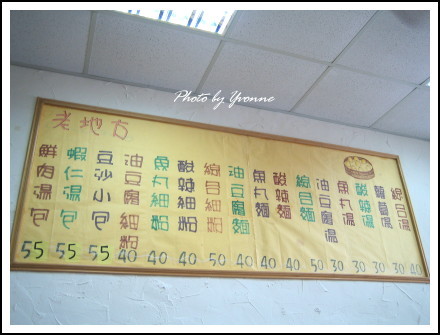 Photo by Yvonne
老地方
鮮肉湯包 55
蝦仁湯包 55
豆沙小包 55
油豆腐細粉 40
魚丸細粉 40
酸辣細粉 40
綜合細粉 50
油豆腐麵 40
魚丸麵 40
酸辣麵 40
綜合麵 50
油豆腐湯 30
魚丸湯 30
酸辣湯 30
湯 30
綜合湯 40